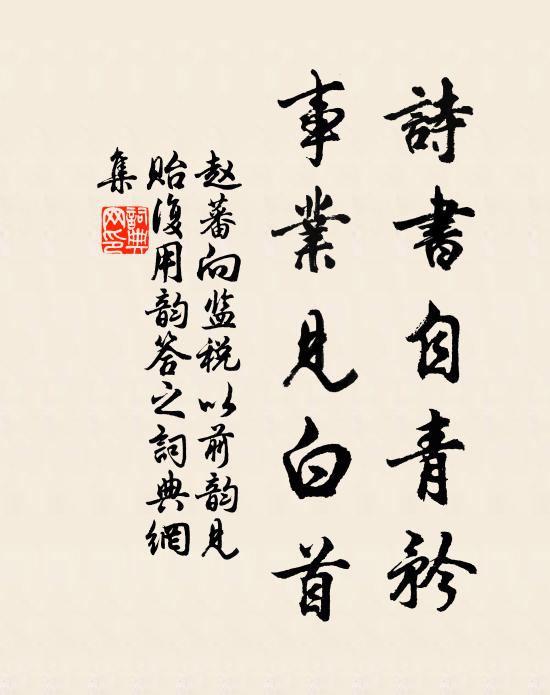 詩書自青衿
事業見白首
赵蕃向监税以前韵见
贻復用韵答之詞典網
集
詞典网印